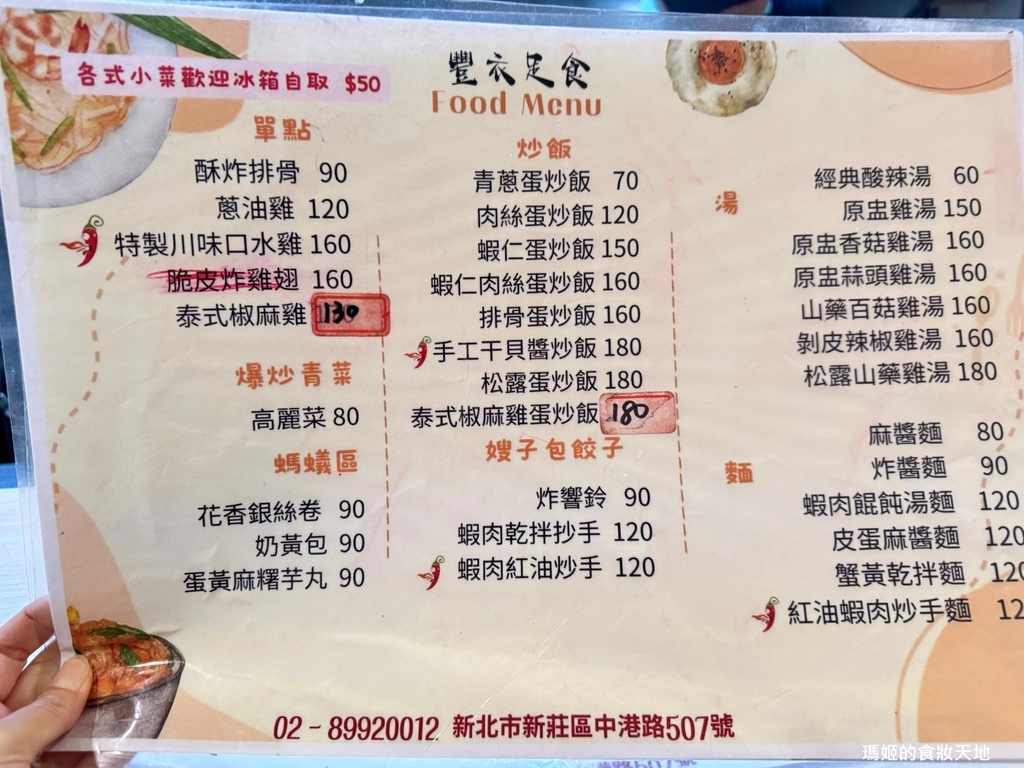 各式小菜歡迎冰箱自取 $50
豐衣足食
Food Menu
單點
酥炸排骨 90
蔥油雞 120
特製川味口水雞 160
脆皮炸雞翅 160
泰式椒麻雞 130
爆炒青菜
高麗菜 80
螞蟻區
花香銀絲卷 90
奶黃包 90
蛋黃麻糬芋丸 90
炒飯
青蔥蛋炒飯 70
肉絲蛋炒飯 120
蝦仁蛋炒飯 150
蝦仁肉絲蛋炒飯 160
排骨蛋炒飯 160
手工干貝醬炒飯 180
松露蛋炒飯 180
泰式椒麻雞蛋炒飯 180
嫂子包餃子
炸響鈴 90
蝦肉乾拌抄手 120
蝦肉紅油炒手 120
湯
經典酸辣湯 60
原盅雞湯 150
原盅香菇雞湯 160
原盅蒜頭雞湯 160
山藥百菇雞湯 160
剝皮辣椒雞湯 160
松露山藥雞湯 180
麵
麻醬麵 80
炸醬麵 90
蝦肉餛飩湯麵 120
皮蛋麻醬麵 120
蟹黃乾拌麵 120
紅油蝦肉炒手麵 12
02-89920012 新北市新莊區中港路507號
瑪姬的食妝天地